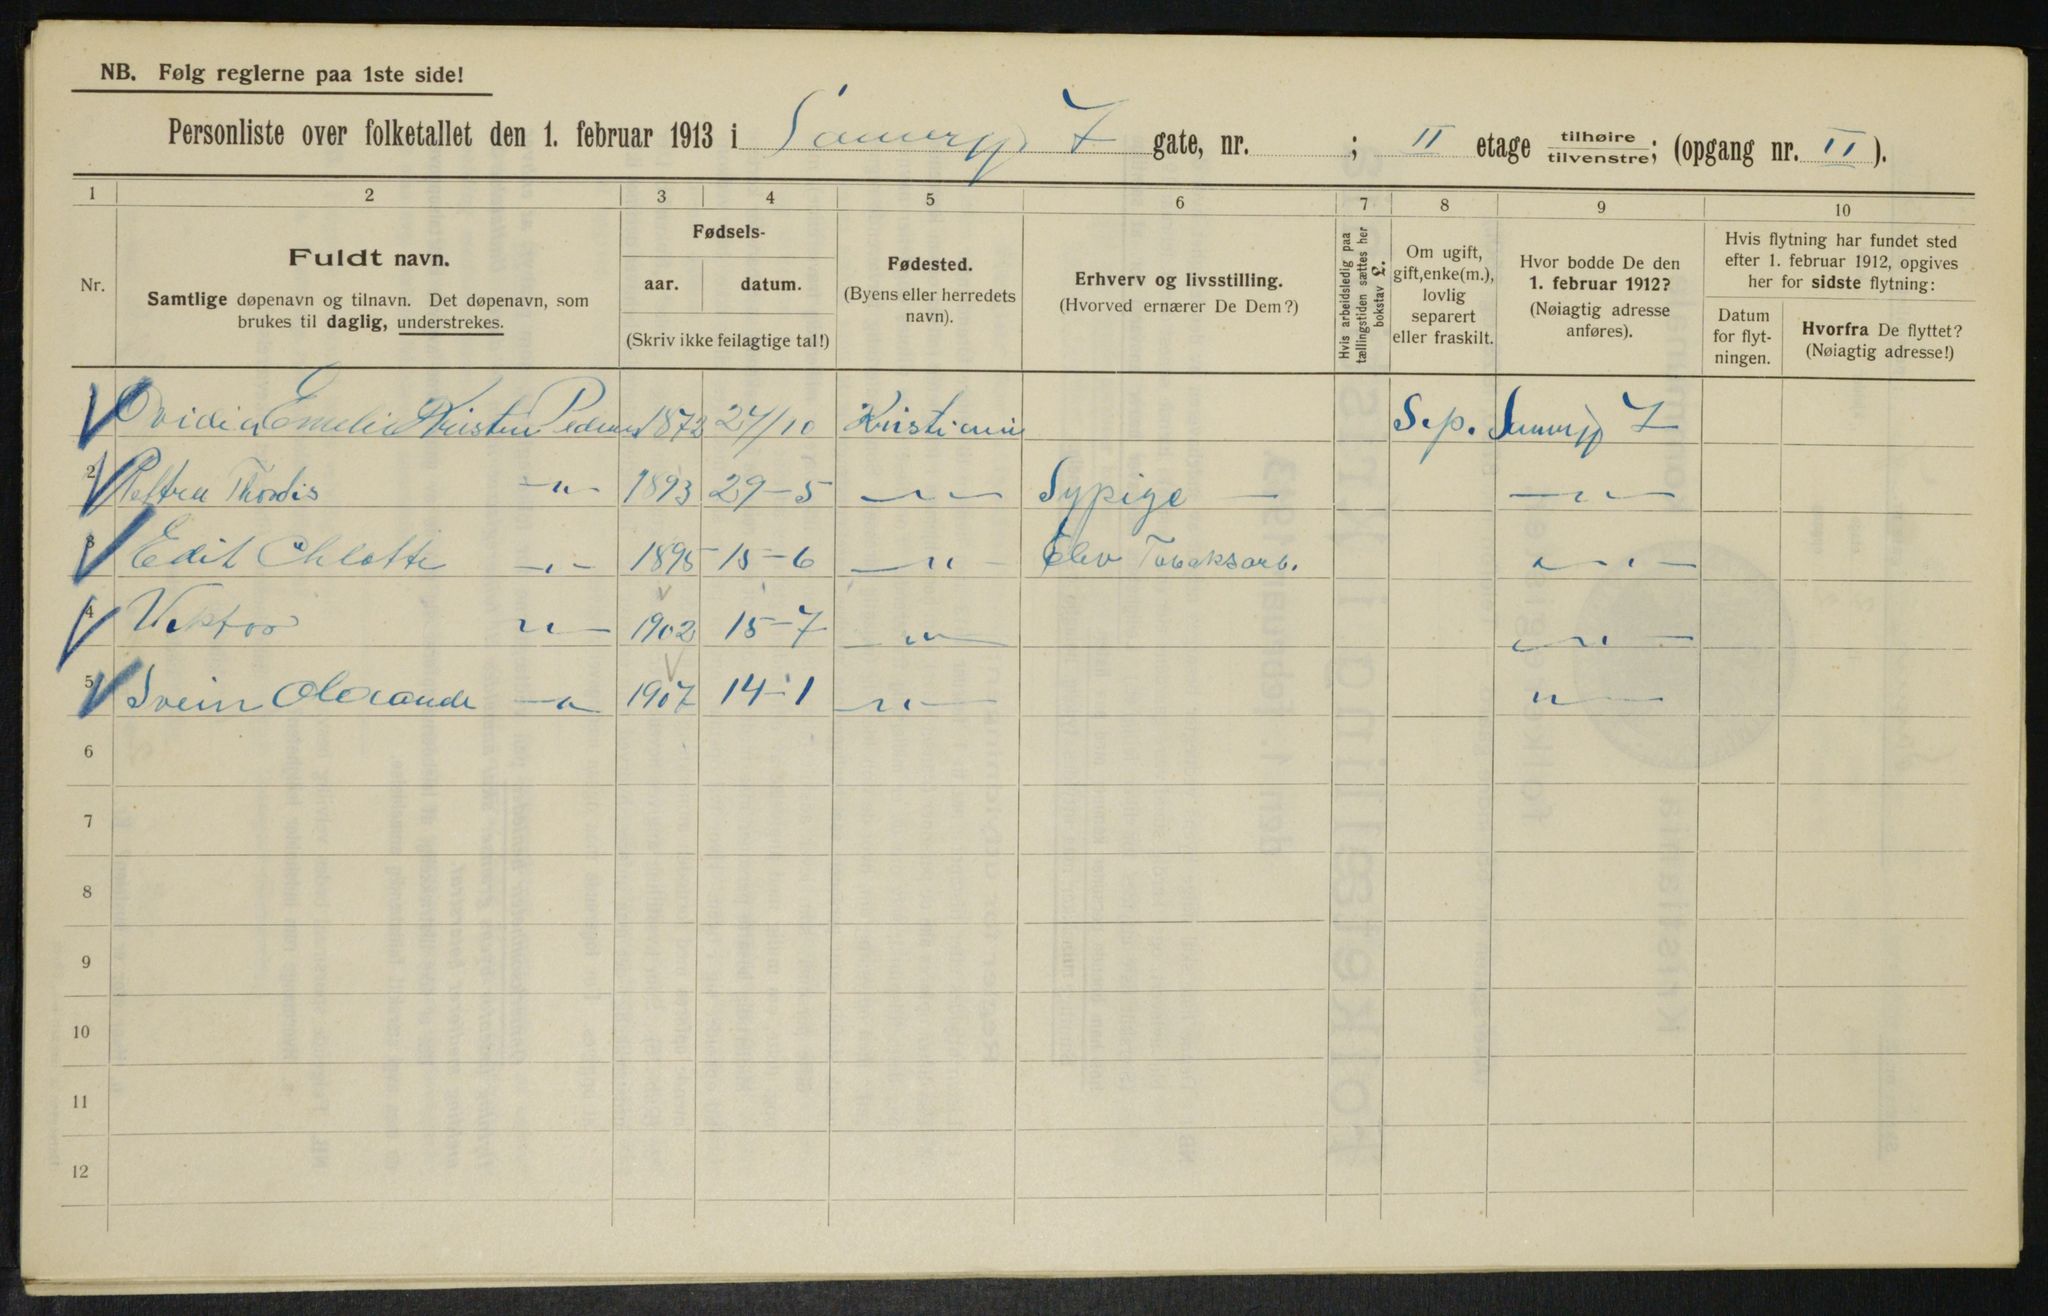 NB. Følg reglerne paa 1ste side!
Personliste over folketallet den 1. februar 1913 i 7 gate, nr. ; II etage tilhøire tilvenstre; (opgang nr. II ).
1 2 3 4 5 6 7 8 9 10
Nr.
Fuldt navn.
Samtlige døpenavn og tilnavn. Det døpenavn, som
brukes til daglig, understrekes.
Fødsels-
aar. datum.
(Skriv ikke feilagtige tal!)
Fødested.
(Byens eller herredets
navn).
Erhverv og livsstilling.
(Hvorved ernærer De Dem?)
Hvis arbeidsledig paa
tællingstiden sættes her
bokstav L.
Om ugift,
gift, enke(m.),
lovlig
separert
eller fraskilt.
Hvor bodde De den
1. februar 1912?
(Nøiagtig adresse
anføres).
Hvis flytning har fundet sted
efter 1. februar 1912, opgives
her for sidste flytning:
Datum
for flyt-
ningen.
Hvorfra De flyttet?
(Nøiagtig adresse!)
Ovidia Emelie Pedersen 1872 24/10 Kristiania Sep. 7
2 Thordis -"- 1893 29-5 -"- Sypige -"-
3 Edit -"- 1895 15-6 -"- Elev Tobaksarb. -"-
4 Viktor -"- 1902 15-7 -"- -"-
5 Svein -"- 1907 14-1 -"- -"-
6
7
8
9
10
11
12